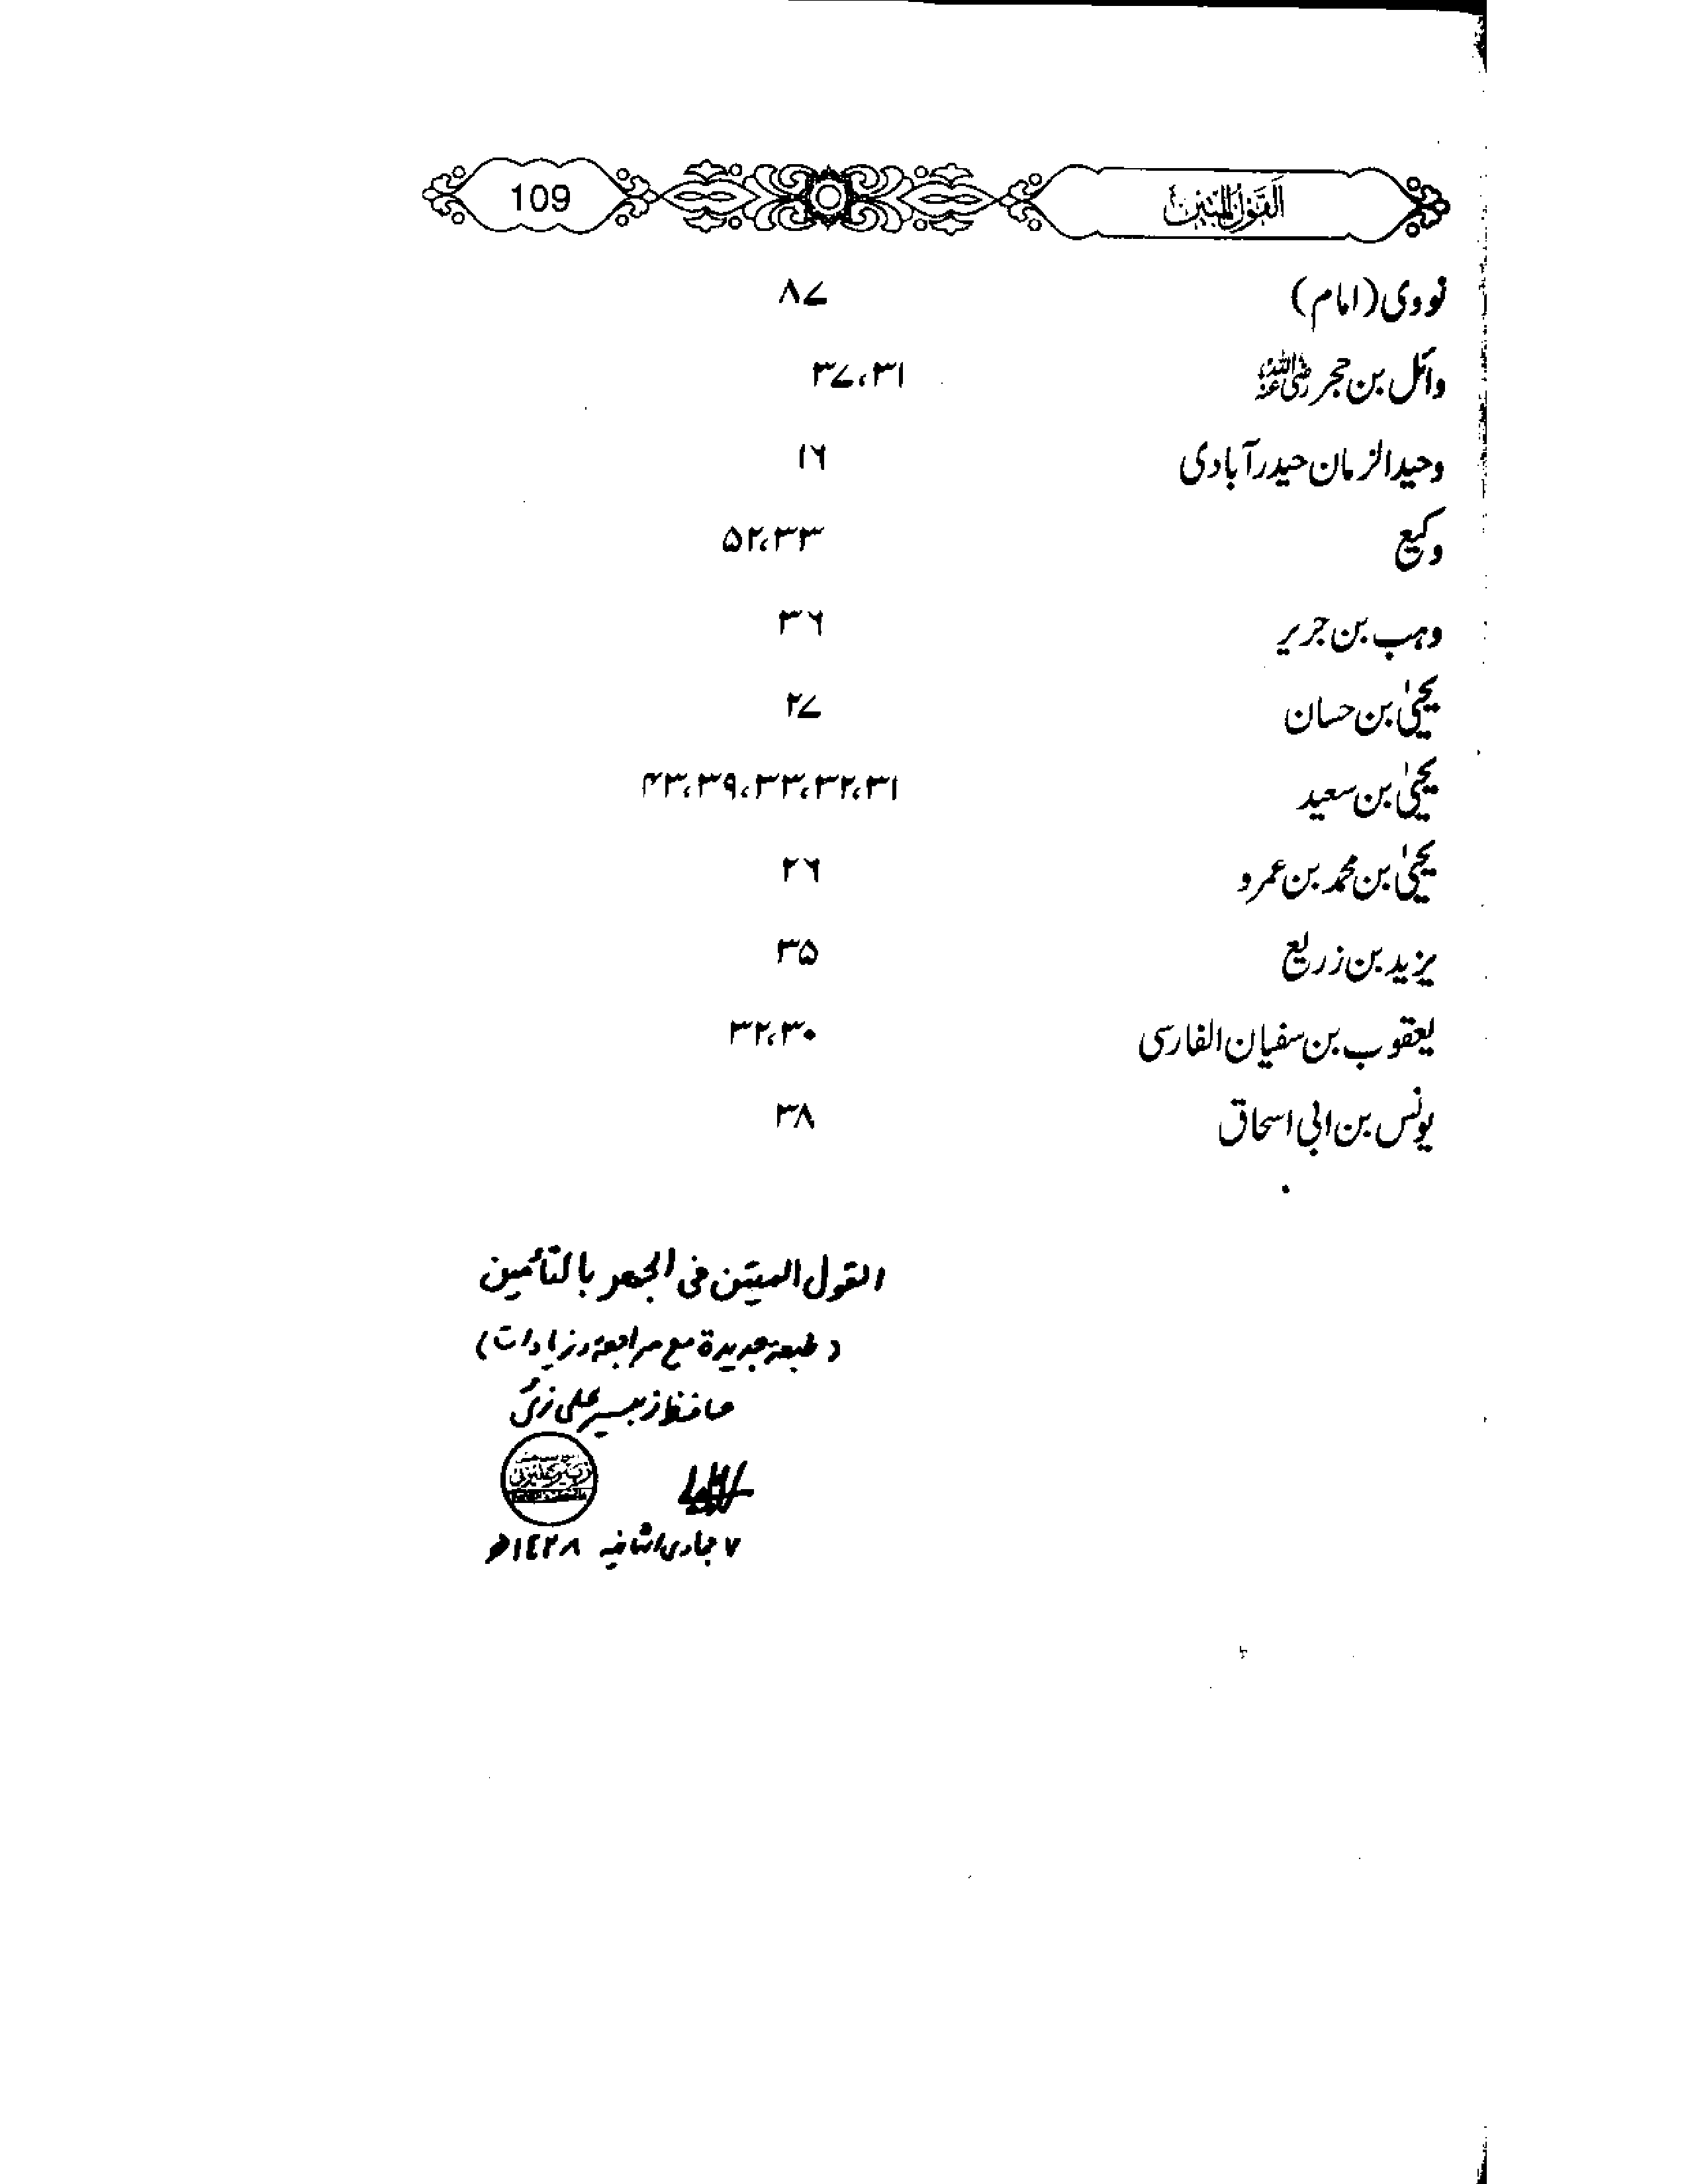 القول المبین 109
نووی (امام) ۸۷
وائل بن حجر رضی اللہ عنہ ۳۱، ۳۷
وحید الزمان حیدرآبادی ۱۶
وکیع ۳۳، ۵۲
وہب بن جریر ۳۶
یحییٰ بن حسان ۲۷
یحییٰ بن سعید ۳۱، ۳۲، ۳۳، ۳۹، ۴۳
یحییٰ بن محمد بن عمرو ۲۶
یزید بن زریع ۳۵
یعقوب بن سفیان الفارسی ۳۰، ۳۲
یونس بن ابی اسحاق ۳۸
القول المبين فى الجهر بالتأمين
(طبعة جديدة مع مراجعة وزيادات)
حافظ زبیر علی زئی
۷ جمادى الثانية ١٤٢٨ھ